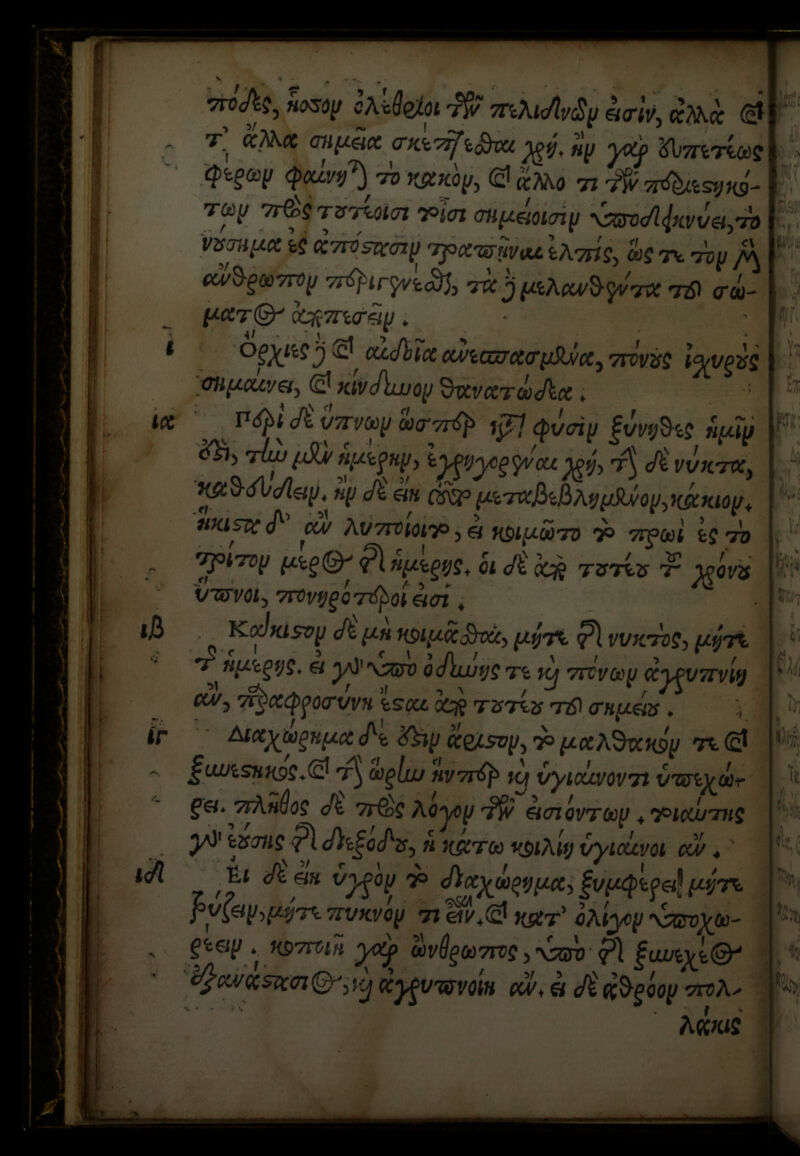 πόδες, ἧσσον ὀλέθριοι τῶν πελιδνῶν εἰσὶν, ἀλλὰ καὶ
τ' ἄλλα σημεῖα σκέπτεσθαι χρή. ἢν γὰρ εὐπετέως
φέρων φαίνηται τὸ κακὸν, καὶ ἄλλο τι τῶν περιεστηκό-
των πρὸς τουτέοισι τοῖσι σημείοισιν ὑποδεικνύει, τὸ
νόσημα ἐς ἀπόστασιν τραπῆναι ἐλπὶς, ὥς τε τὸν μὲν
ἄνθρωπον περιγενέσθαι, τὰ δὲ μελανθέντα τοῦ σώ-
ματος ἀποπεσεῖν.
ι Ὄρχιες δὲ καὶ αἰδοῖα ἀνεσπασμένα, πόνους ἰχυροὺς
σημαίνει, καὶ κίνδυνον θανατώδεα.
ια Περὶ δὲ ὕπνων ὥσπερ κατὰ φύσιν ξύνηθες ἡμῖν
ἐστι, τὴν μὲν ἡμέρην, ἐγρηγορέναι χρὴ, τὴν δὲ νύκτα,
καθεύδειν, ἢν δὲ εἴη τοῦτο μεταβεβλημένον, κάκιον.
ἥκιστα δ' ἂν λυποῖοιτο, εἰ κοιμῶτο τὸ πρωὶ ἐς τὸ
τρίτον μέρος τῆς ἡμέρης, οἱ δὲ ἀπὸ τουτέου τοῦ χρόνου
ὕπνοι, πονηρότεροί εἰσι.
ιβ Κάκιστον δὲ μὴ κοιμᾶσθαι, μήτε τῆς νυκτὸς, μήτε
τῆς ἡμέρης. εἰ γὰρ ὑπὸ ὀδύνης τε καὶ πόνων ἀγρυπνίη
ἂν, παραφροσύνη ἔσται ἀπὸ τουτέου τοῦ σημείου.
ιγ Διαχώρημα δὲ ἐστὶν ἄριστον, τὸ μαλθακόν τε καὶ
ξυνεστηκός. καὶ τὴν ὥρην ἥνπερ καὶ ὑγιαίνοντι ὑπεχώ-
ρει. πλῆθος δὲ πρὸς λόγον τῶν εἰσιόντων, τοιαύτης
γὰρ ἐούσης τῆς διεξόδου, ἡ κάτω κοιλίη ὑγιαίνοι ἄν.
ιδ Εἰ δὲ εἴη ὑγρὸν τὸ διαχώρημα, ξυμφέρει μήτε
βύζειν, μήτε πυκνόν τι εἶν, καὶ κατ' ὀλίγον ὑποχω-
ρέειν. κοποιῆ γὰρ ὥνθρωπος, ὑπὸ τῆς ξυνεχέος
ἐξαναστάσιος, καὶ ἀγρυπνοίη ἄν. εἰ δὲ ἀθρόον πολ-
λάκις